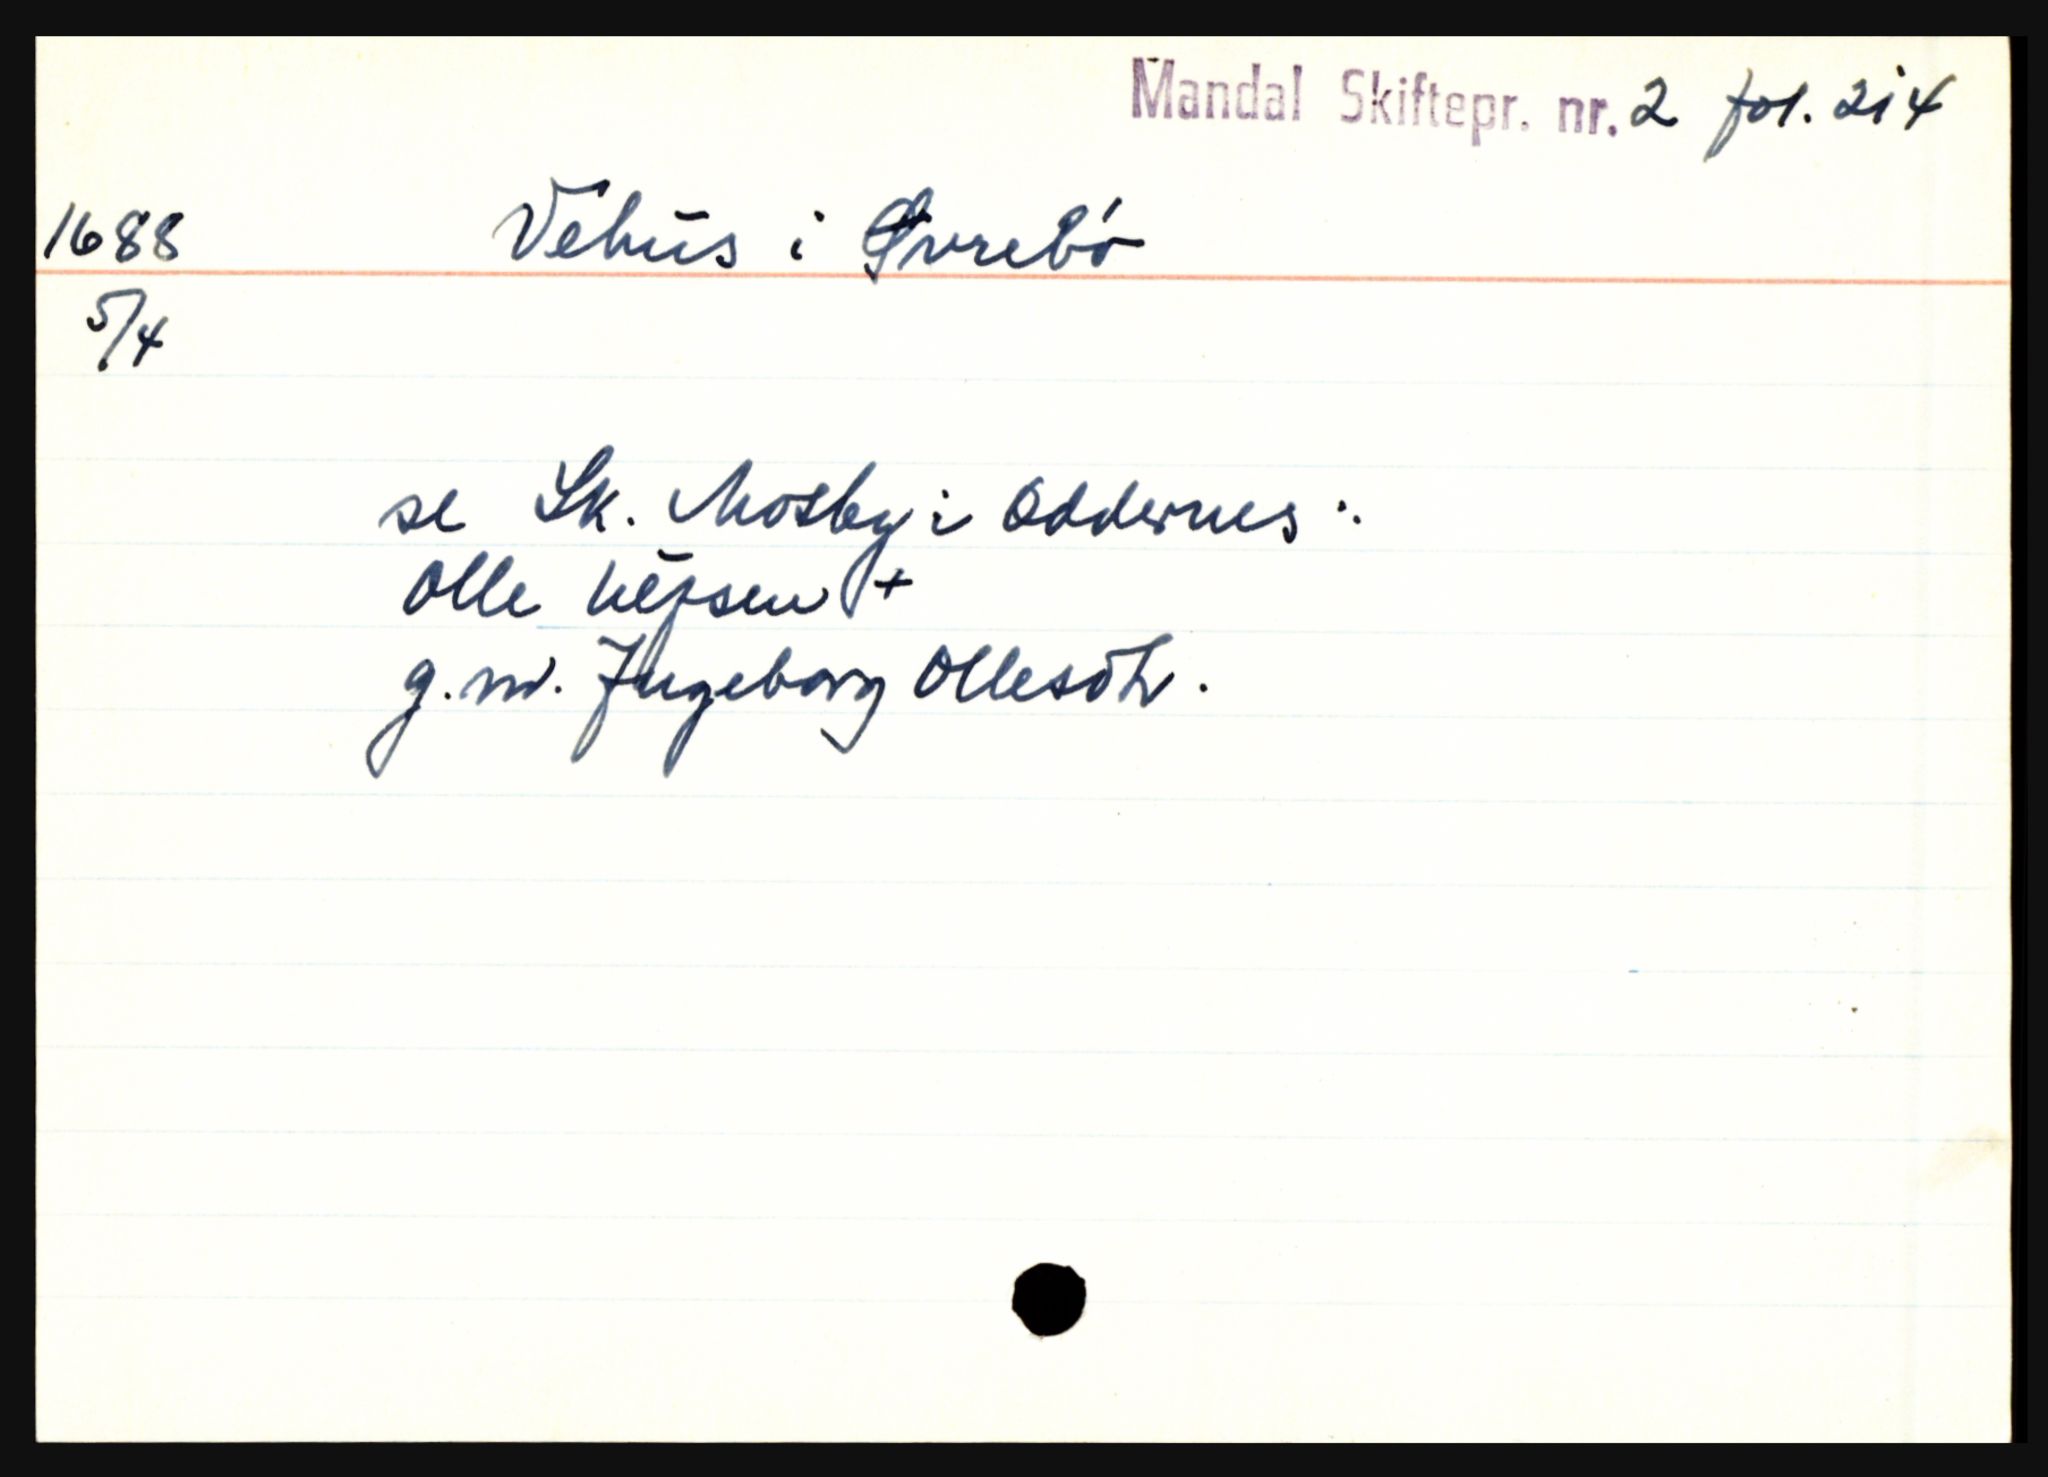 Mandal Skiftepr. nr. 2 fol. 214
1688 Vehus i Øvrebø
5/4
se Sk. Mosby i Oddernes:
Olle +
g.m. Ingeborg Ollesdtr.